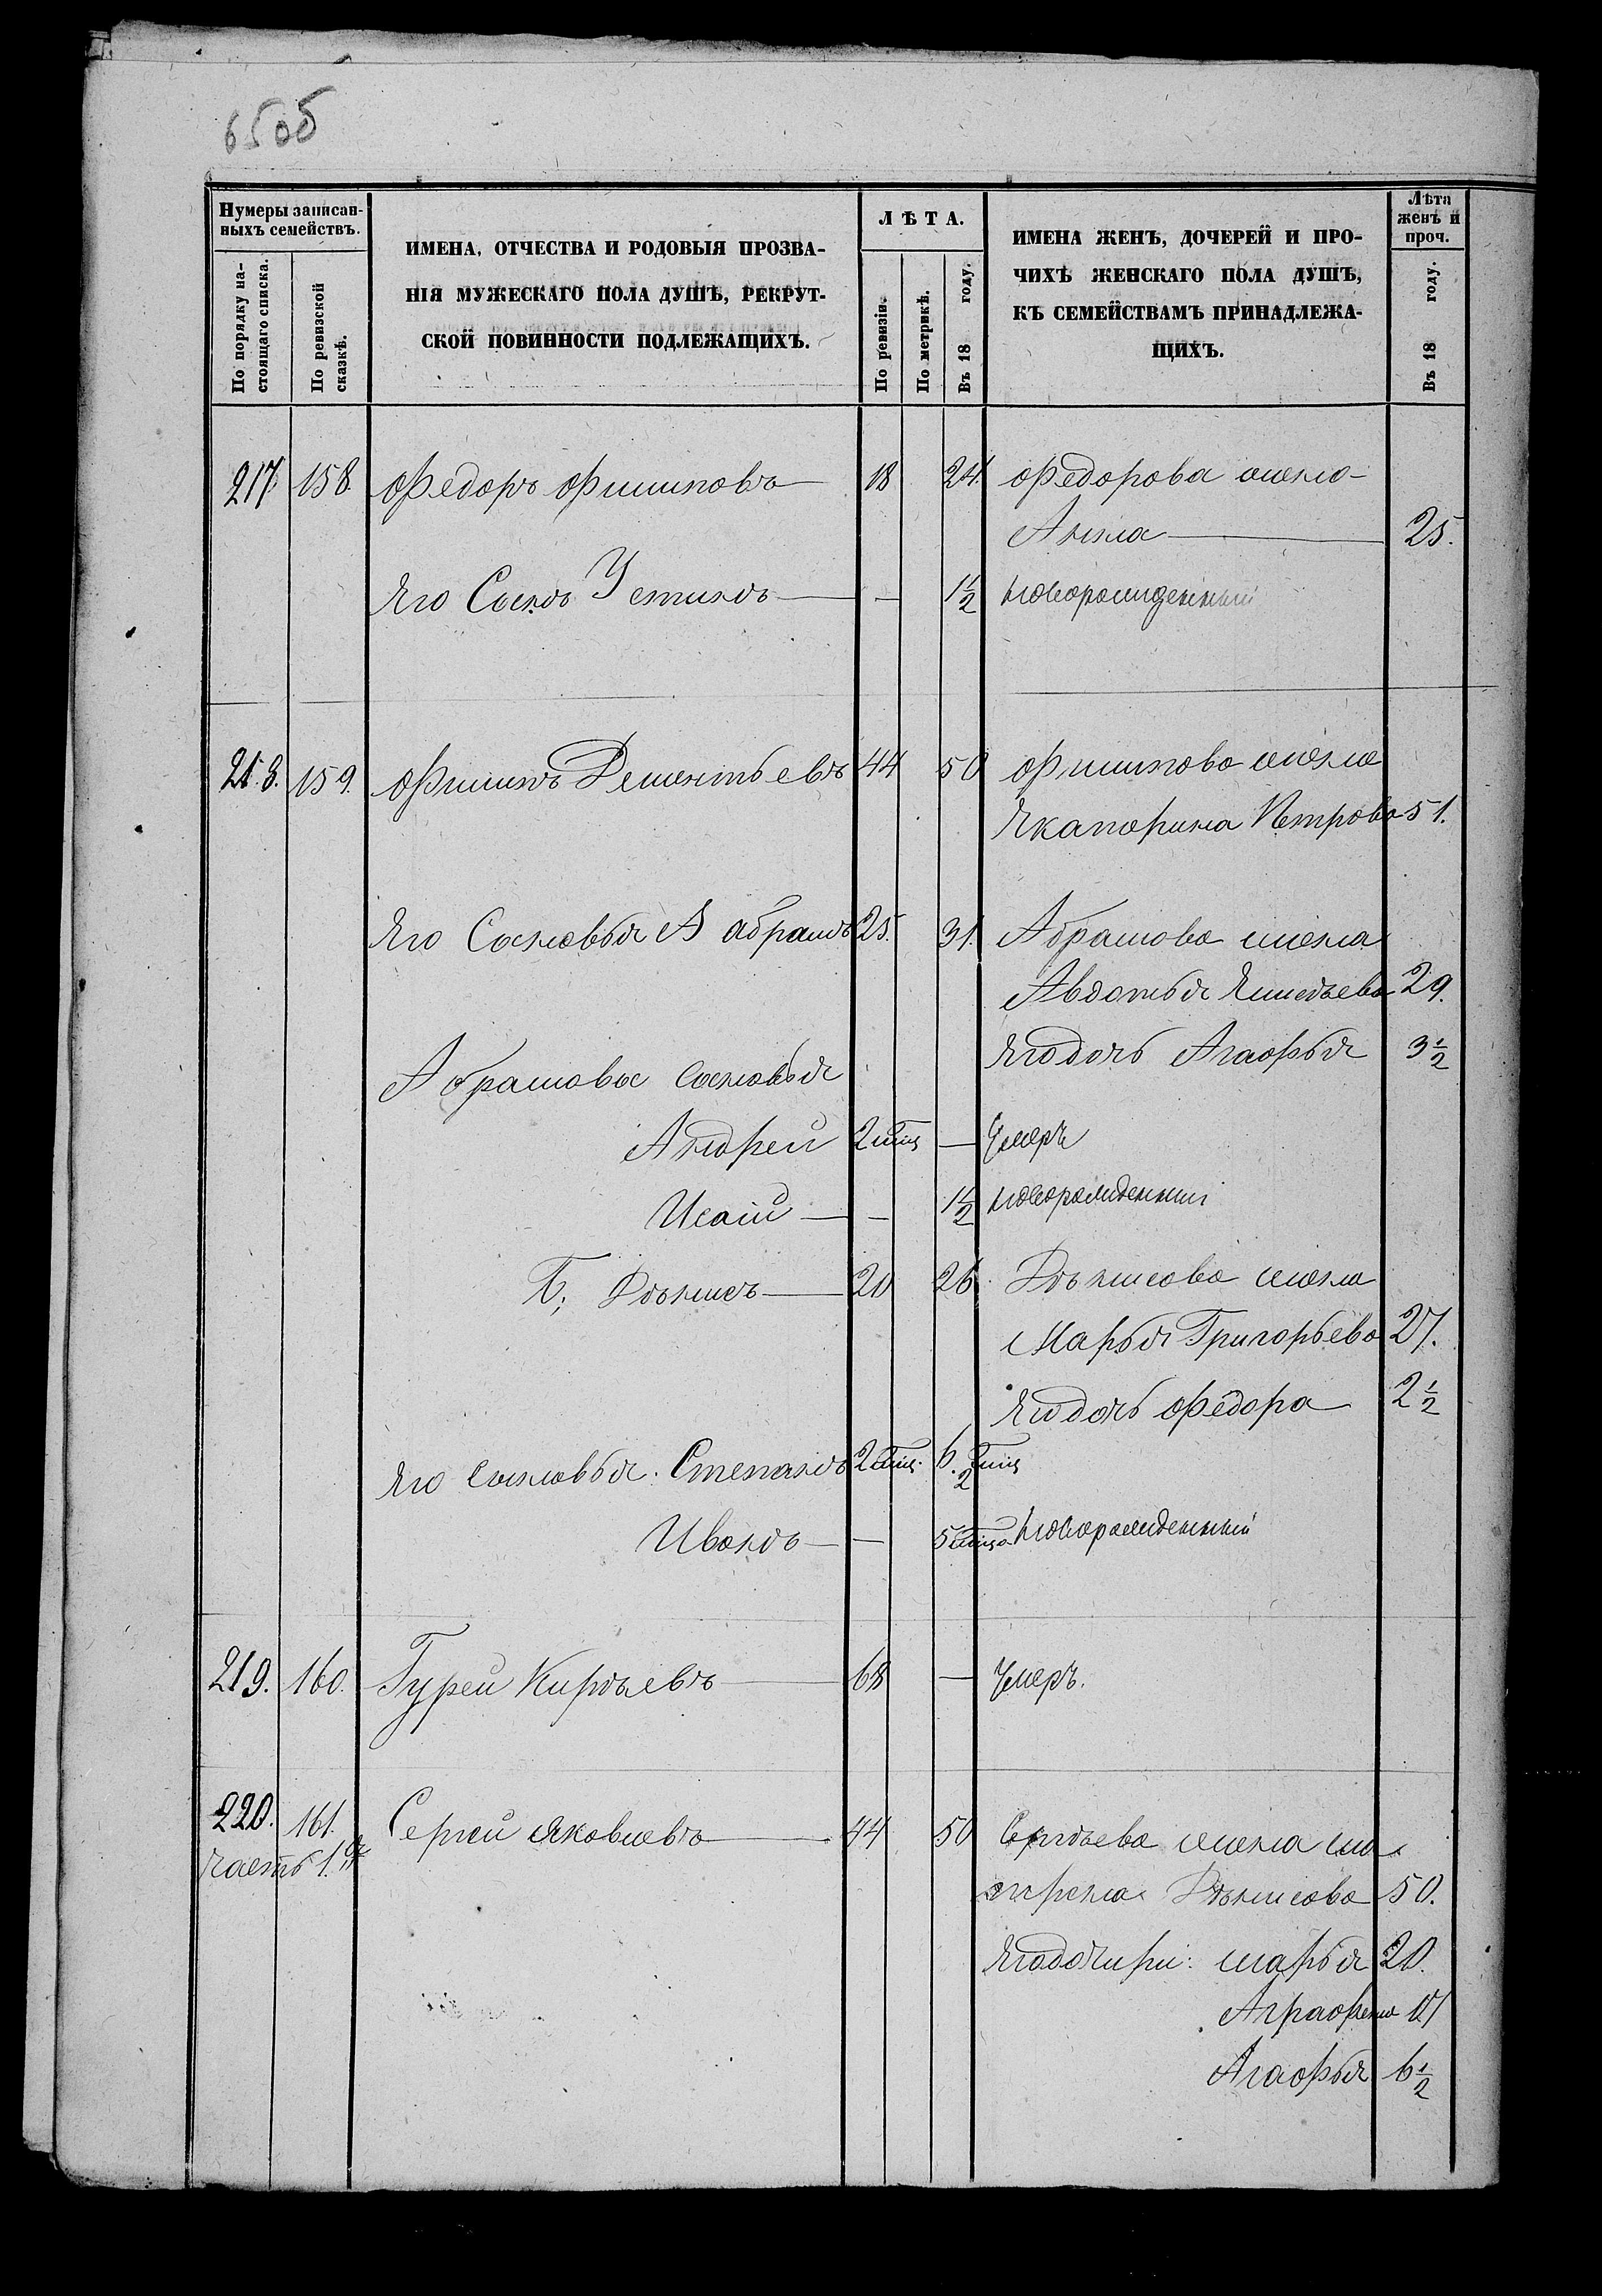 65об
Нумеры записан-
ныхъ семействъ.
По порядку на-
стоящаго списка.
По ревизской
сказкѣ.
ИМЕНА, ОТЧЕСТВА И РОДОВЫЯ ПРОЗВА-
НІЯ МУЖЕСКАГО ПОЛА ДУШЪ, РЕКРУТ-
СКОЙ ПОВИННОСТИ ПОДЛЕЖАЩИХЪ.
ЛѢТА.
По ревизіи.
По метрикѣ.
Въ 18 году.
ИМЕНА ЖЕНЪ, ДОЧЕРЕЙ И ПРО-
ЧИХЪ ЖЕНСКАГО ПОЛА ДУШЪ,
КЪ СЕМЕЙСТВАМЪ ПРИНАДЛЕЖА-
ЩИХЪ.
Лѣта
женъ и
проч.
Въ 18 году.
217. 158. Федоръ Филиповъ 18 24. Федорова жена
Анна 25.
Его Сынъ Устинъ — 1½ новорожденный
218. 159. Филипъ Дементьевъ 44 50 Филипова жена
Екатерина Петрова 51.
Его Сыновья А абрамъ 25. 31. Абрамова жена
Авдотья 29.
Его дочь Агафья 3½
Абрамовы сыновья
Андрей 2 — Умеръ
Исай — 1½ новорожденный
Б; Дѣнисъ 20 26. Дѣнисова жена
Марья Григорьева 27.
Его дочь Федора 2½
Его сыновья. Степанъ 2 6.½
Иванъ — 5 новорожденный
219. 160. Гурей Кирѣевъ 68 — Умеръ.
220. 161. Сергей Яковлевъ 44 50 Сергѣева жена
часть 1.я
Дѣнисова 50.
Его дочири: марья 20.
Аграфена 17
Агафья 6½